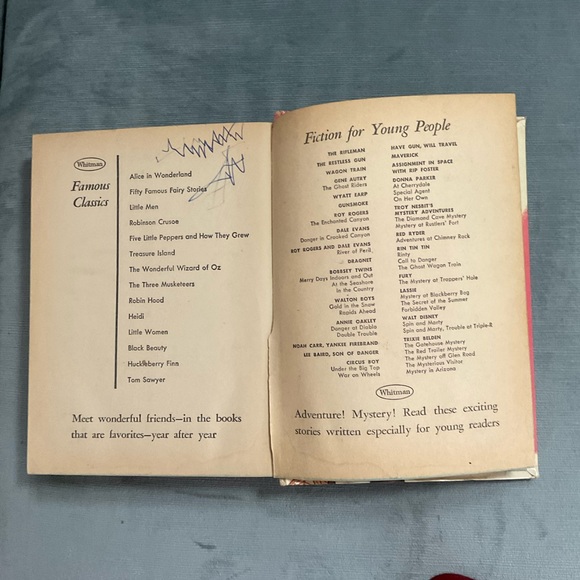 Whitman
Famous
Classics
Alice in Wonderland
Fifty Famous Fairy Stories
Little Men
Robinson Crusoe
Five Little Peppers and How They Grew
Treasure Island
The Wonderful Wizard of Oz
The Three Musketeers
Robin Hood
Heidi
Little Women
Black Beauty
Huckleberry Finn
Tom Sawyer
Meet wonderful friends—in the books
that are favorites—year after year
Fiction for Young People
THE RIFLEMAN
THE RESTLESS GUN
WAGON TRAIN
GENE AUTRY
The Ghost Riders
WYATT EARP
GUNSMOKE
ROY ROGERS
The Enchanted Canyon
DALE EVANS
Danger in Crooked Canyon
ROY ROGERS AND DALE EVANS
River of Peril,
DRAGNET
BOBBSEY TWINS
Merry Days Indoors and Out
At the Seashore
In the Country
WALTON BOYS
Gold in the Snow
Rapids Ahead
ANNIE OAKLEY
Danger at Diablo
Double Trouble
NOAH CARR, YANKEE FIREBRAND
LEE BAIRD, SON OF DANGER
CIRCUS BOY
Under the Big Top
War on Wheels
HAVE GUN, WILL TRAVEL
MAVERICK
ASSIGNMENT IN SPACE
WITH RIP FOSTER
DONNA PARKER
At Cherrydale
Special Agent
On Her Own
TROY NESBIT'S
MYSTERY ADVENTURES
The Diamond Cave Mystery
Mystery at Rustlers' Fort
RED RYDER
Adventures of Chimney Rock
RIN TIN TIN
Rinty
Call to Danger
The Ghost Wagon Train
FURY
The Mystery at Trappers' Hole
LASSIE
Mystery at Blackberry Bog
The Secret of the Summer
Forbidden Valley
WALT DISNEY
Spin and Marty
Spin and Marty, Trouble at Triple-R
TRIXIE BELDEN
The Gatehouse Mystery
The Red Trailer Mystery
The Mystery off Glen Road
The Mysterious Visitor
Mystery in Arizona
Whitman
Adventure! Mystery! Read these exciting
stories written especially for young readers